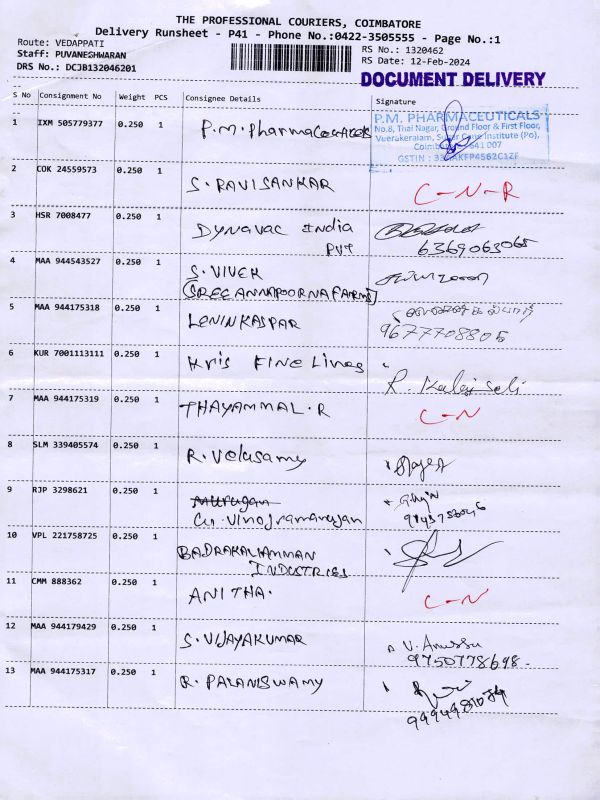 THE PROFESSIONAL COURIERS, COIMBATORE
Delivery Runsheet - P41 - Phone No.:0422-3505555 - Page No.:1
Route: VEDAPPATI
Staff: PUVANESHWARAN
DRS No.: DCJB132046201
RS No.: 1320462
RS Date: 12-Feb-2024
DOCUMENT DELIVERY
S No Consignment No Weight PCS Consignee Details Signature
1 IXM 505779377 0.250 1 P.M. Pharmaceuticals
P.M. PHARMACEUTICALS
No.8, Thai Nagar, Ground Floor & First Floor,
Veerakeralam, Sugar Cane Institute (Po),
Coimbatore - 641 007
GSTIN :
2 COK 24559573 0.250 1 S. RAVISANKAR C-N-R
3 HSR 7008477 0.250 1 DYNAVAC India
PVT 6369063065
4 MAA 944543527 0.250 1 S. VIVEK
(SREE ANNAPOORNA FARMS)
5 MAA 944175318 0.250 1 LENINKASPAR
9677708805
6 KUR 7001113111 0.250 1 Kris FINE Lines
7 MAA 944175319 0.250 1 THAYAMMAL.R C-N
8 SLM 339405574 0.250 1 R. Velusamy
9 RJP 3298621 0.250 1 Murugan
10 VPL 221758725 0.250 1 BADRAKALIAMMAN
INDUSTRIES
11 CMM 888362 0.250 1 ANITHA. C-N
12 MAA 944179429 0.250 1 S. VIJAYAKUMAR
9750778698
13 MAA 944175317 0.250 1 R. PALANISWAMY